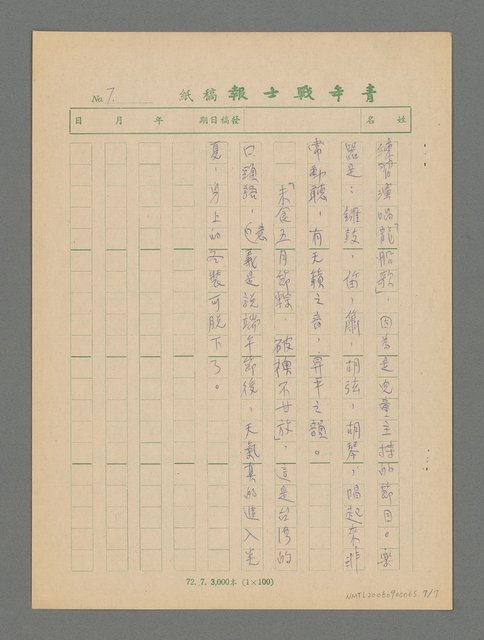 No. 7.
青年戰士報稿紙
姓名 發稿日期 年 月 日
練習演唱「龍船歌」,因為是兒童主持的節目。樂
器是:鑼鼓,笛,簫,胡弦,胡琴,唱起來非
常動聽,有天籟之音,昇平之韻。
「未食五月節粽,破襖不甘放」,這是台灣的
口頭語,意義是說端午節後,天氣真的進入炎
夏,身上的冬裝可脫下了。
72. 7. 3,000本 (1×100)
NMTL20080900065. 7/7